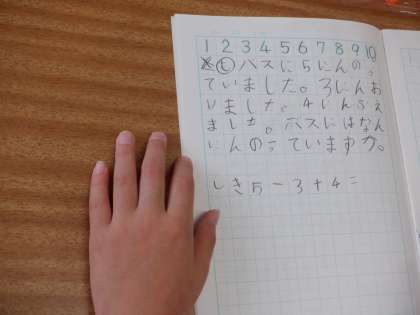 1 2 3 4 5 6 7 8 9 10
とバスに5にんのっ
ていました。3にんお
りました。4にんふえ
ました。バスにはなん
にんのっていますか。
しき5-3+4=